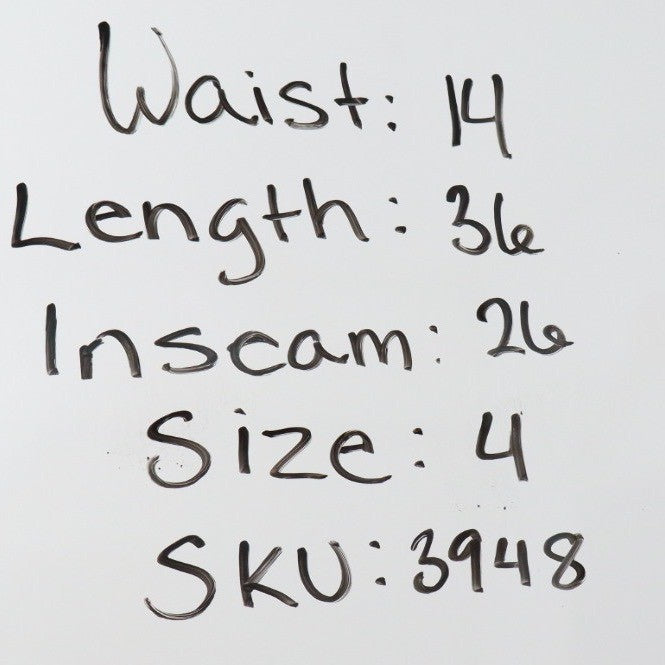 Waist: 14
Length: 36
Inseam: 26
Size: 4
SKU: 3948